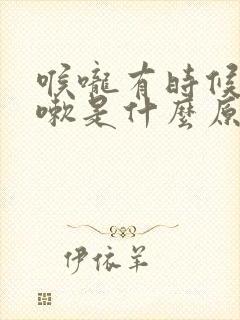 喉嚨有時候
嗽是什麼原
伊依羊